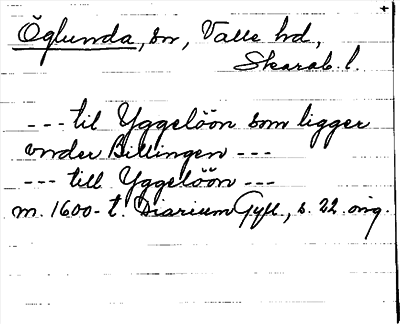 Öglunda, sn, Valle hd,
Skarab. l.
--- til Yggelöön som ligger
vnder Billingen ---
--- till Yggelöön ---
m. 1600-t. Diarium Gyll., s. 22 orig.